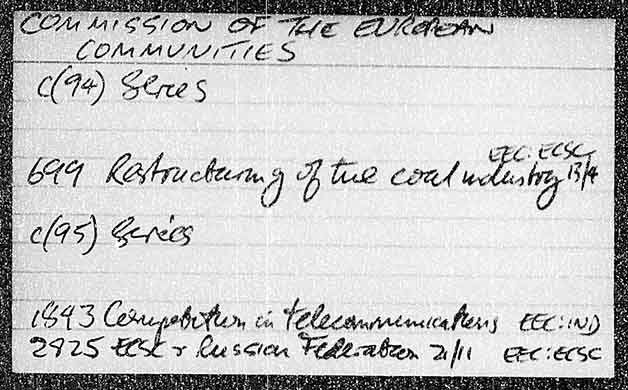 COMMISSION OF THE EUROPEAN
COMMUNITIES
C(94) Series
EEC:ECSC
699 Restructuring of the coal industry 13/4
C(95) Series
1843 Competition in telecommunications EEC:IND
2825 ECSC + Russian Federation 21/11 EEC:ECSC